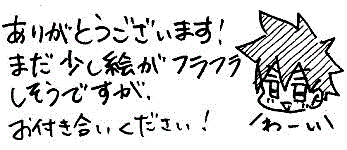 ありがとうございます!
まだ少し絵がフラフラ
しそうですが、
お付き合いください!
わーい